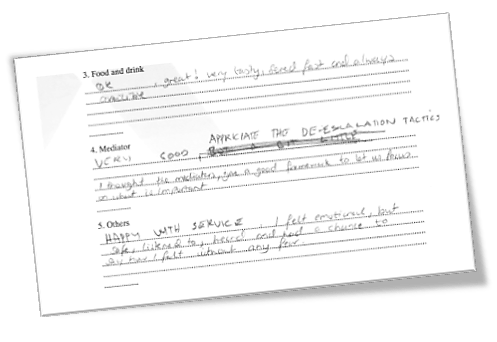 3. Food and drink
OK, great! very tasty, served fast and always
available
4. Mediator
VERY GOOD, APPRICIATE THO DE-ESCALATION TACTICS
I thought the mediators, gave a good framework to let us focus
on what is important
5. Others
HAPPY WITH SERVICE, I felt emotional, but
safe, listened to, heard and had a chance to
say how I felt without any fear.